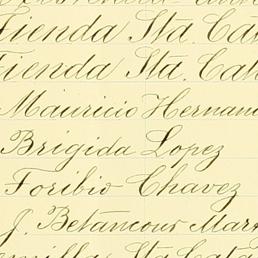 Tienda Sta. Cat
Tienda Sta. Cat
Mauricio Hernand
Brigida Lopez
Toribio Chavez
J. Betancour Mar
Sta Cata